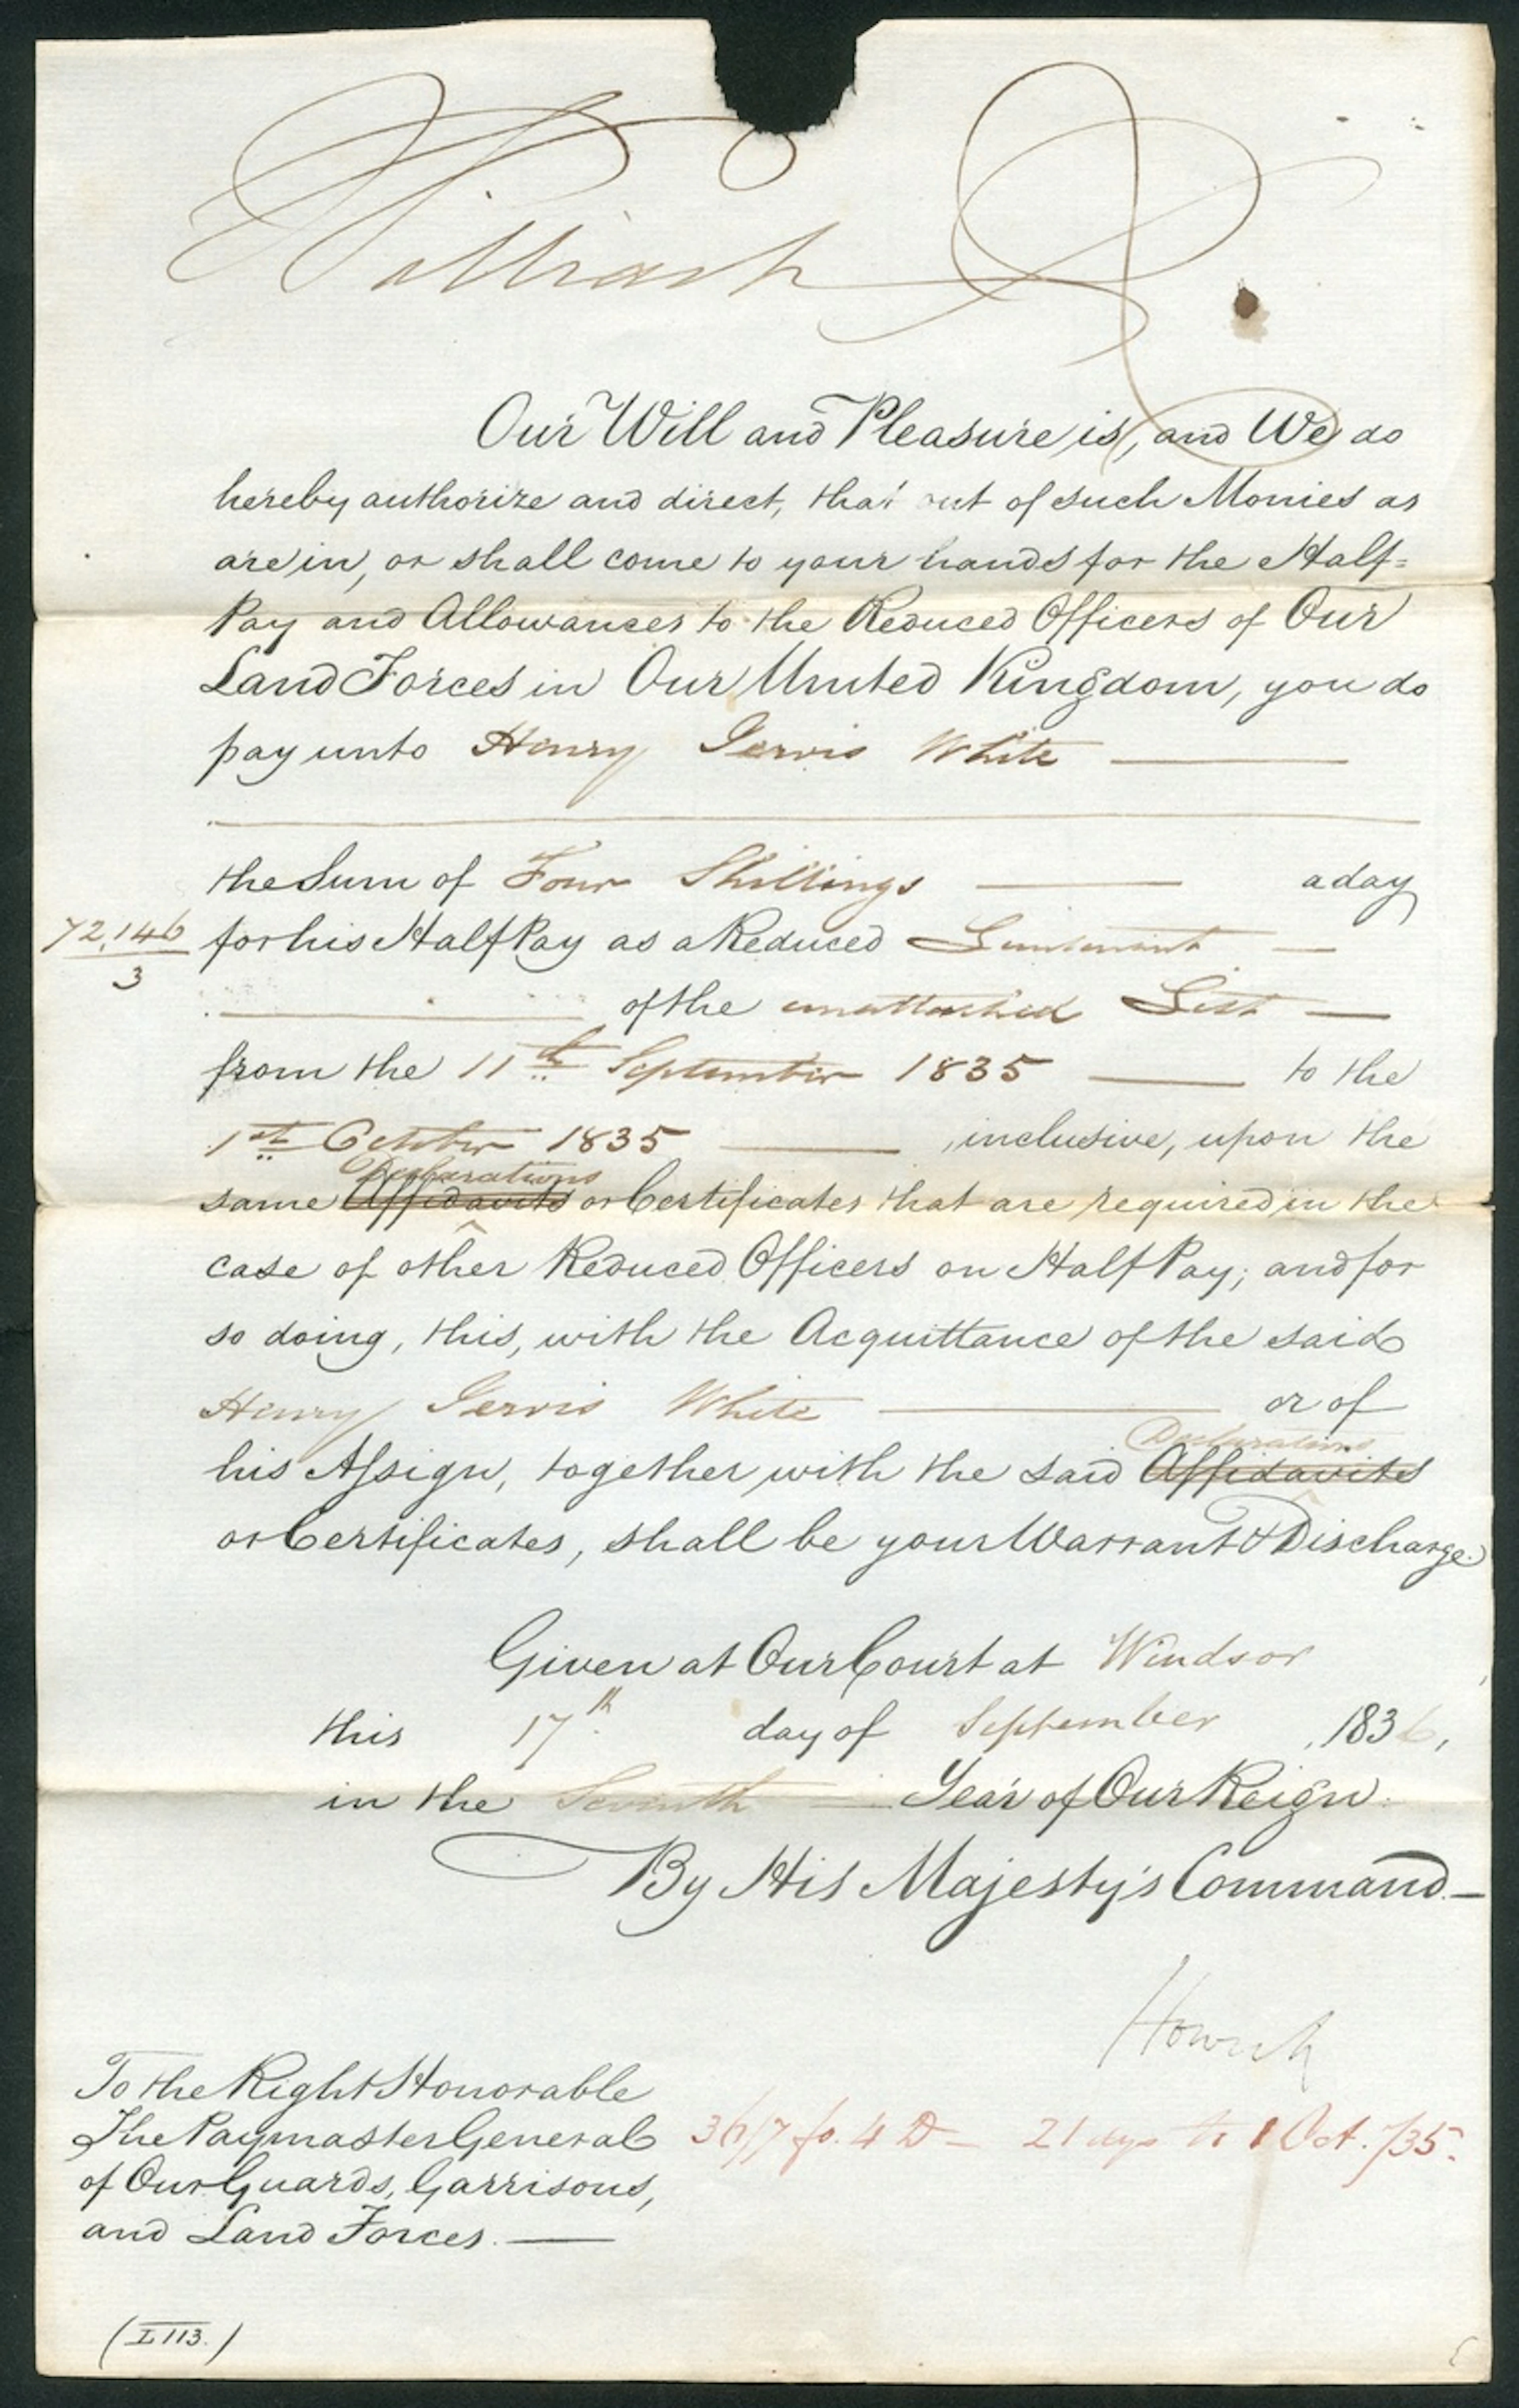 William R
Our Will and Pleasure is, and We do
hereby authorize and direct, that out of such Monies as
are in, or shall come to your hands for the Half=
Pay and Allowances to the Reduced Officers of Our
Land Forces in Our United Kingdom, you do
pay unto Henry Jervis White
the Sum of Four Shillings a day
72,146 for his Half Pay as a Reduced Lieutenant
3
of the unattached List
from the 11th September 1835 to the
1st October 1835 , inclusive, upon the
Declarations
same Affidavits or Certificates that are required in the
case of other Reduced Officers on Half Pay; and for
so doing, this, with the Acquittance of the said
Henry Jervis White or of
Declarations
his Assign, together with the said Affidavits
or Certificates, shall be your Warrant & Discharge.
Given at Our Court at Windsor
this 17th day of September , 1836,
in the Seventh Year of Our Reign.
By His Majesty's Command.
Howick
To the Right Honorable
The Paymaster General
of Our Guards, Garrisons,
and Land Forces.
36/7 fo. 4 D - 21 days to 1 Oct. /35.
(I 113.)